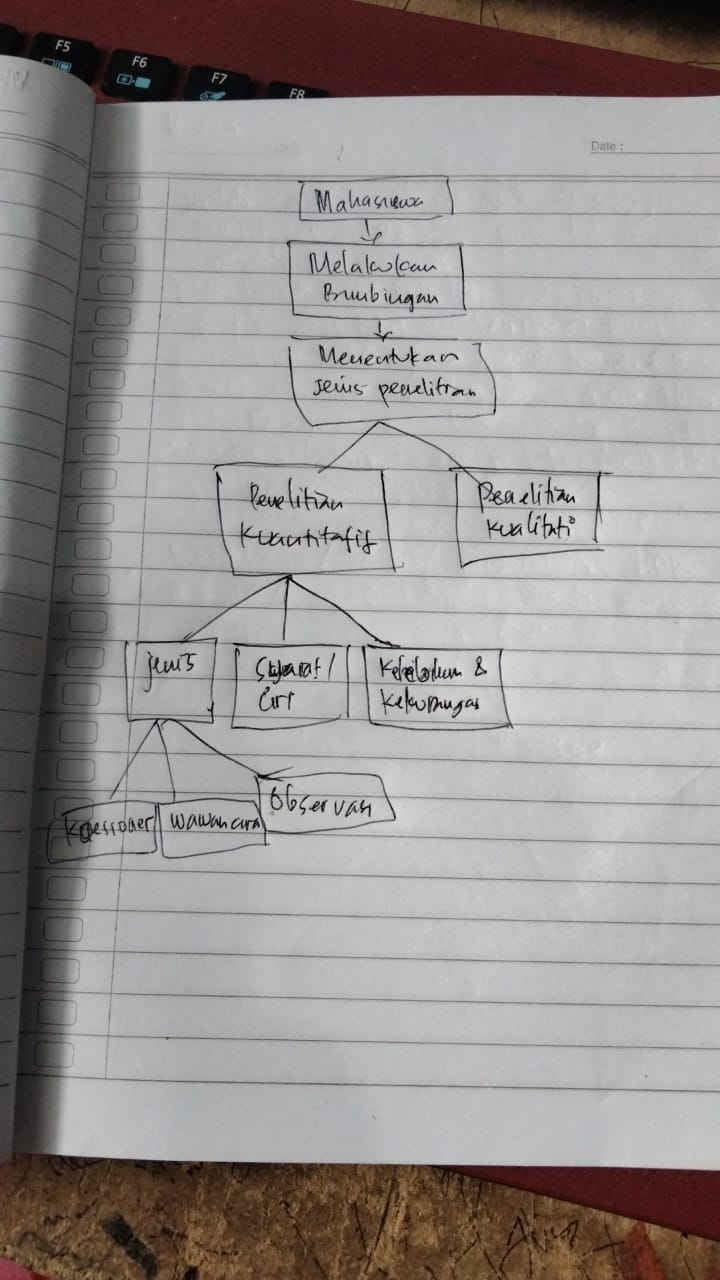 F5
F6
F7
F8
Date :
Mahasiswa
Melakukan
Bimbingan
Menentukan
jenis penelitian
Penelitian
Kuantitatif
Penelitian
Kualitati
jenis
Syarat /
Ciri
&
Kuesioner
wawancara
Observasi